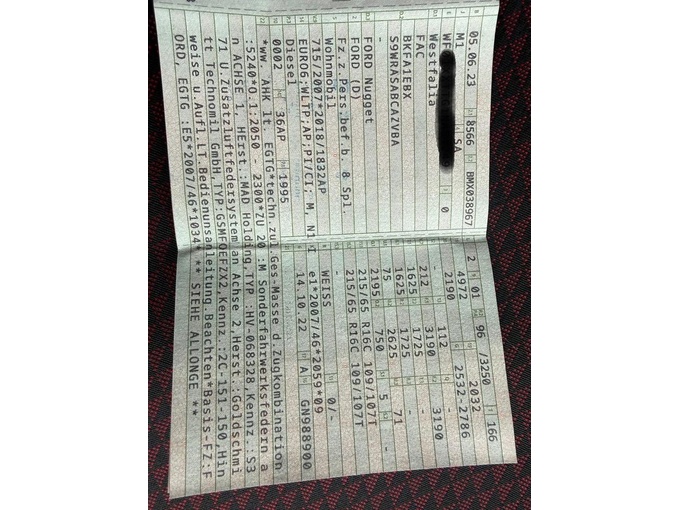 05.06.23 8566 BMX038967
M1 SA
WF 0
Westfalia
FAC
BKFA1EBX
S9WRASABCAZVBA
-
FORD Nugget
FORD (D)
Fz.z.Pers.bef.b. 8 Spl.
Wohnmobil
715/2007*2018/1832AP
EURO6;WLTP;AP;PI/CI; M, N1 I
Diesel
0002 36AP 1995
2 01 96 /3250 166
4972 2032
2190 2532-2786
112 3190
212 3190
1625 1725 -
1625 1725 -
75 2525 71
2195 750 5 -
215/65 R16C 109/107T
215/65 R16C 109/107T
-
WEISS 0/-
e1*2007/46*2059*09
14.10.22 A GN988900
*ww. AHK lt. EGTG*techn.zul.Ges.Masse d.Zugkombination
:5240*0.1:2050 - 2300*ZU 20 :M Sonderfahrwerksfedern a
n ACHSE 1, HErst.:MAD Holding,TYP :HV-068328,Kennz.:S3
71 U.Zusatzluftfedersystem an Achse 2,Herst.:Goldschmi
tt Technomil GmbH,TYP:GSMFOEFZX2,Kennz.:2C-L51-150,Hin
weise u.Aufl.LT.Bedienunsanleitung.Beachten*Basis-FZ:F
ORD, EGTG :E5*2007/46*1034* ** SIEHE ALLONGE **